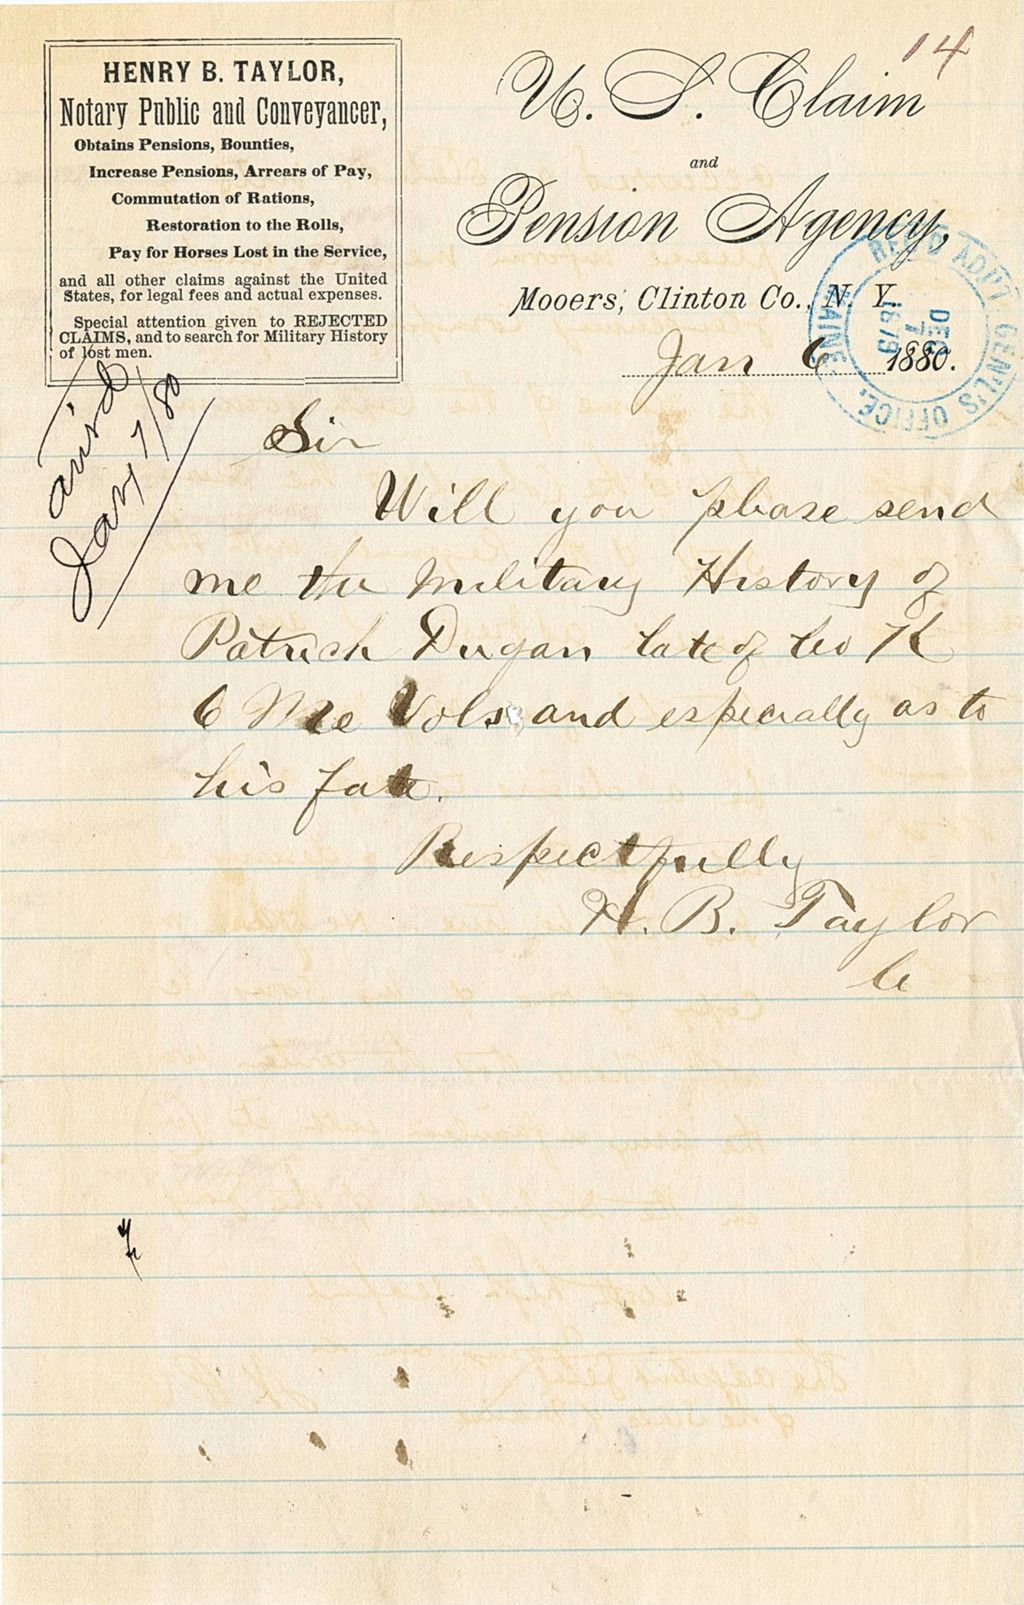 14
HENRY B. TAYLOR,
Notary Public and Conveyancer,
Obtains Pensions, Bounties,
Increase Pensions, Arrears of Pay,
Commutation of Rations,
Restoration to the Rolls,
Pay for Horses Lost in the Service,
and all other claims against the United
States, for legal fees and actual expenses.
Special attention given to REJECTED
CLAIMS, and to search for Military History
of lost men.
U. S. Claim
and
Pension Agency,
Mooers, Clinton Co., N. Y.
Jan 6 1880.
REC'D ADJ'T GENL'S OFFICE,
MAINE
DEC
7
1879
Jany 7/80
Sir
Will you please send
me the Military History of
Patrick Dugan late of Co K
6 Me Vols, and especially as to
his fate.
Respectfully
H. B. Taylor